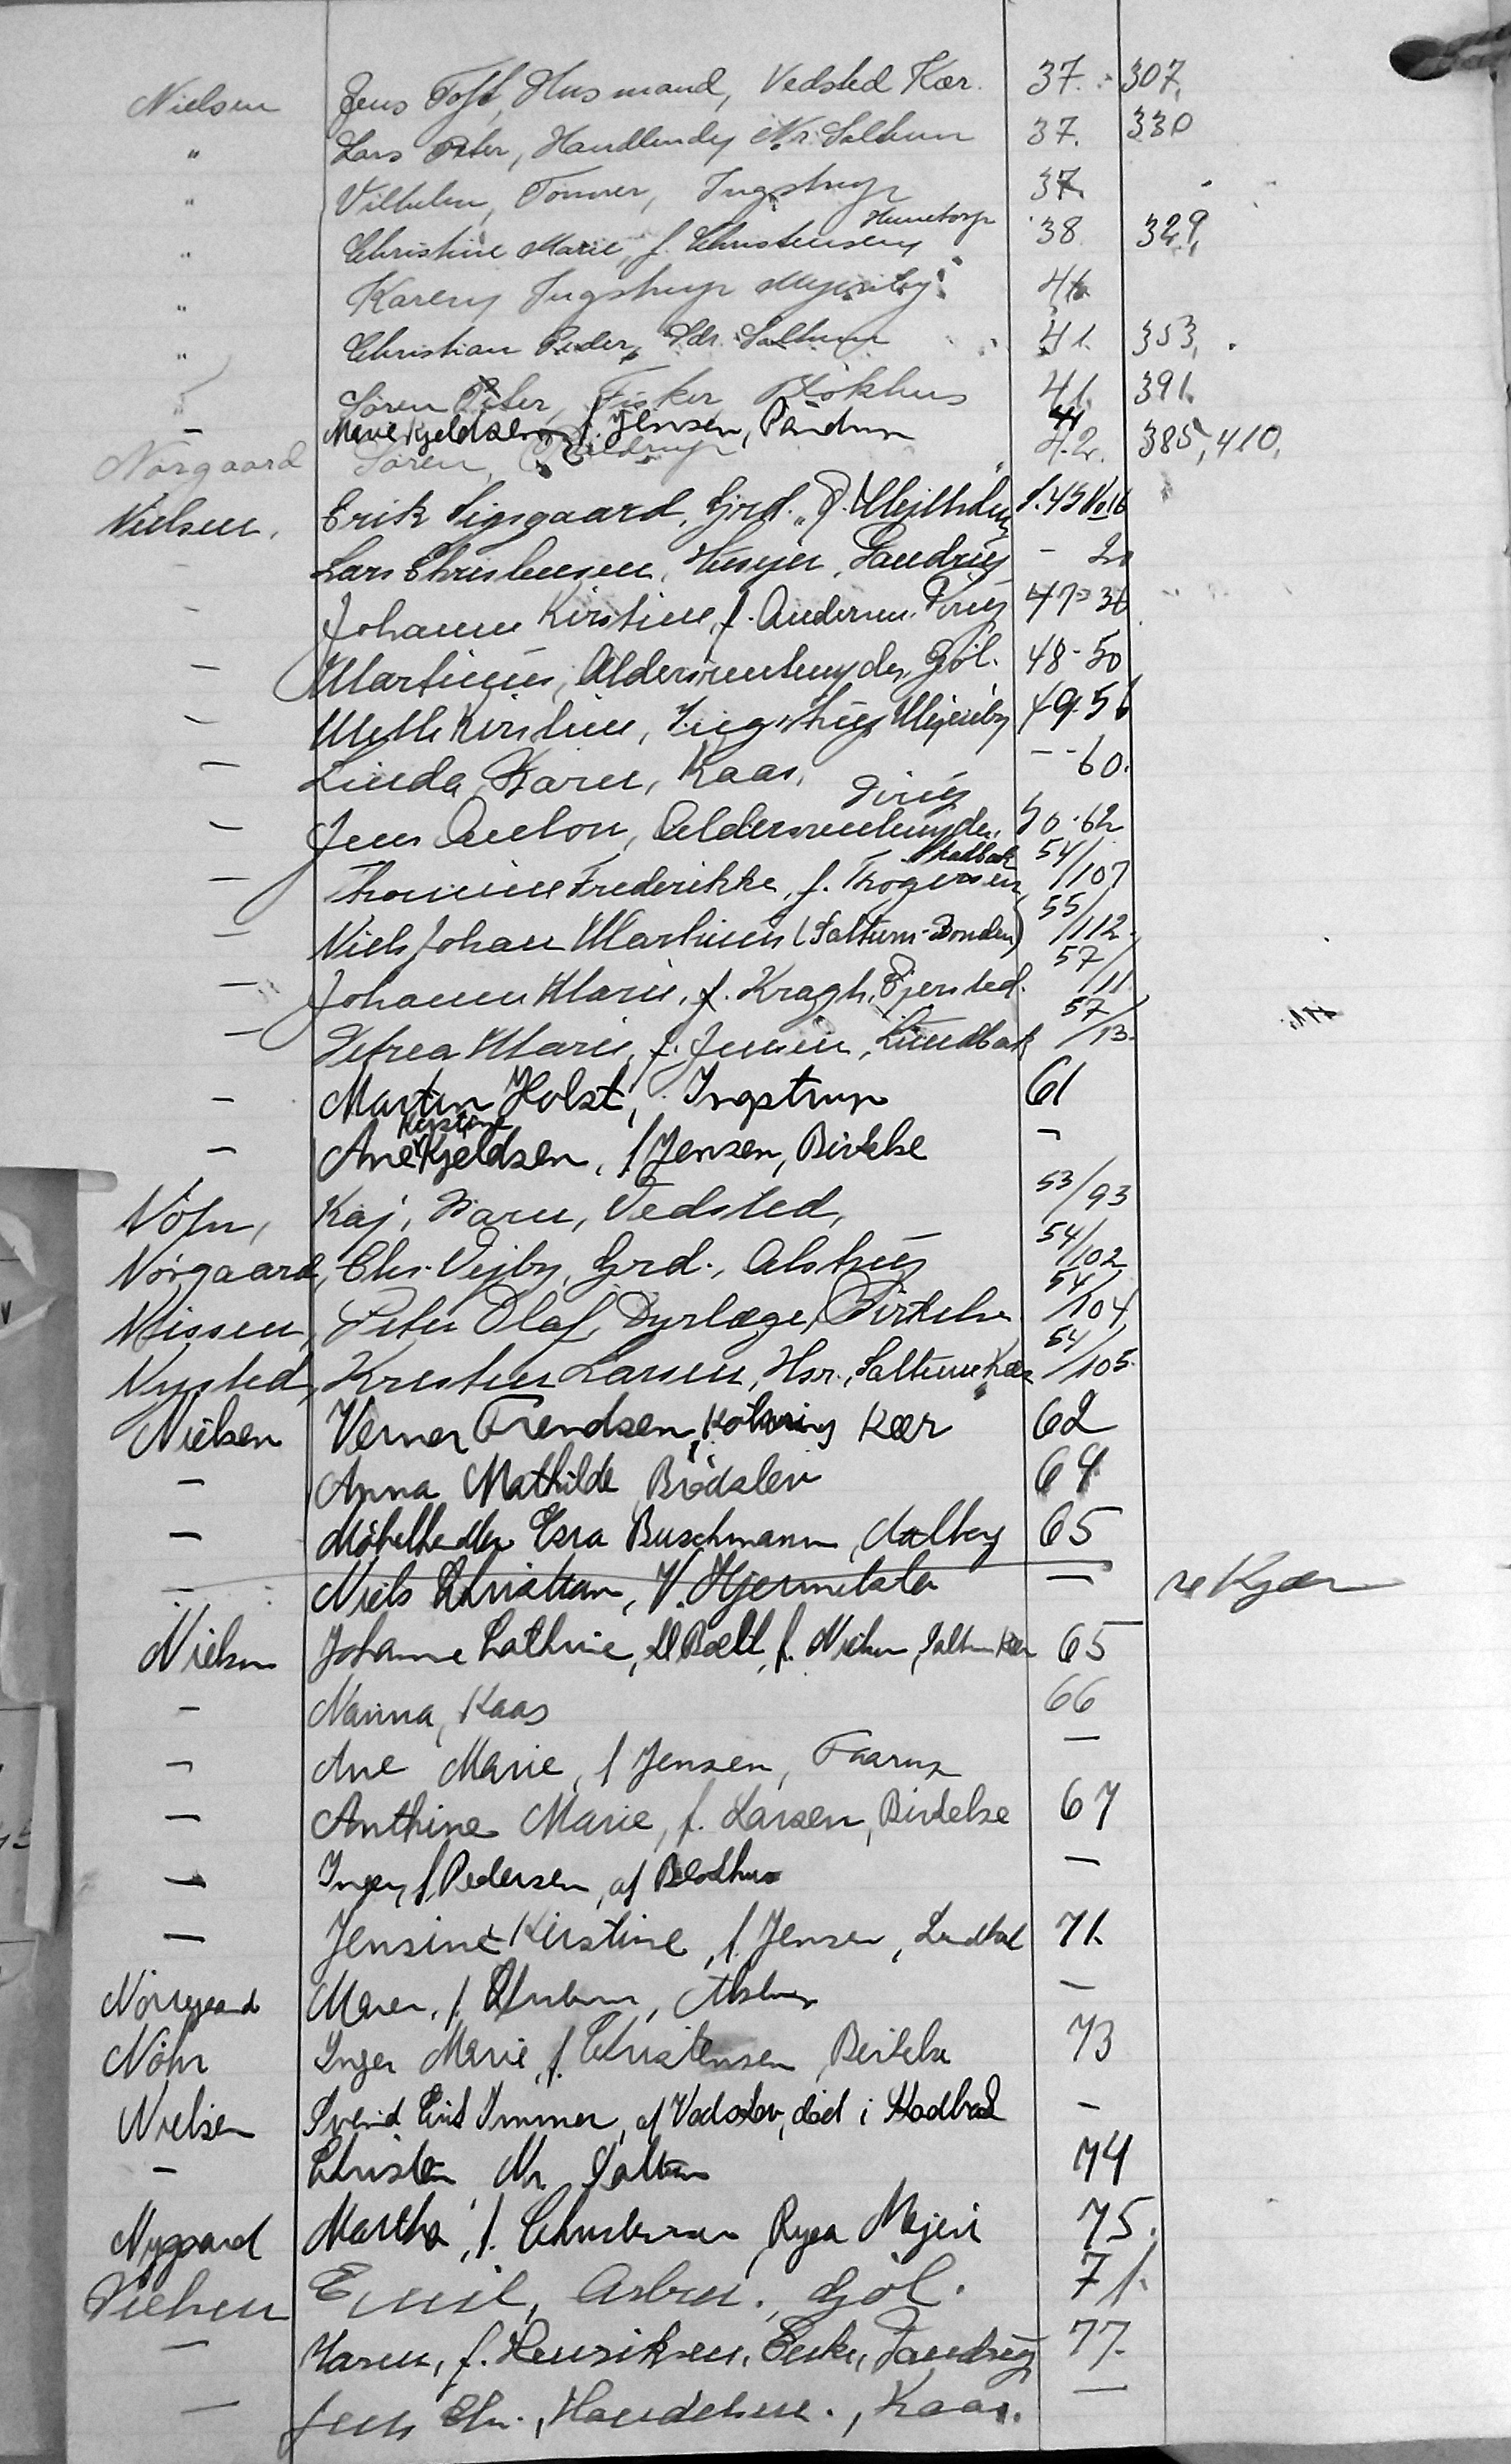 Nielsen Jens Toft, Husmand, Vedsted Kær. 37. 307,
" Lars Peter, Handlende, Nr. Saltum 37. 330
" Vilhelm, Tømrer, Ingstrup 37.
" Christine Marie, f. Christensen, Hunetorp 38 329,
" Karen, Ingstrup Mejeriby 41.
" Christian Peder, Sdr. Saltum 41. 353,
" Søren Peter, Fisker, Blokhus 41. 391.
— Marie Kjeldsen f. Jensen, Pandrup 41
Nørgaard Søren, 42. 385, 410,
Nielsen, Erik Sigsgaard, Grd. S. 45 No 16
- Lars Christensen, Husejer, Jandrup - 20
- Johanne Kirstine, f. Andersen, 47 - 36
— Martinus, Aldersrentenyder, Gjøl. 48 - 50
— Mette Kirstine, Ingstrup Mejeriby 49. 56
— Linda, Barn, Kaas, - - 60.
— Jens Anton, Aldersrentenyder, 50 - 62
— Thomine Frederikke, f. Thøgersen, 54/107
— Niels Johan Martinus (Saltum-Bonden) 55/112.
— Johanne Marie, f. Kragh, Tjersted. 57/11
— Petrea Marie, f. Jensen, Lundbak 57/13.
- Martin Holst, Ingstrup 61
- Ane Kirstine Kjeldsen, f Jensen, Birkelse —
Nöhr, Kaj, Barn, Vedsted, 53/93
Nørgaard, Chr. Vejby, Grd., Alstrup 54/102
Nissen, Peter Olaf, Dyrlæge, Birkelse 54/104
Nysted, Kresten Larsen, Hsr., Saltum Kær 54/105.
Nielsen Verner Frendsen, Kær 62
— Anna Mathilde Brødslev 64
— Møbelhandler Esra Buschmann, Aalborg 65
— Niels Christian, V. Hjermitslev — se Kjær
Nielsen Johanne Cathrine, f. Nielsen, Saltum Kær 65
- Nanna, Kaas 66
- Ane Marie, f Jensen, Faarup —
— Anthine Marie, f. Larsen, Birkelse 67
— Inger, f Pedersen, af Blokhus —
— Jensine Kirstine, f. Jensen, Lundbak 71.
Nørregaard Maren, f. —
Nöhr Inger Marie, f. Christensen Birkelse 73
Nielsen Svend Erik Immer, af Vadslev, død i -
- Christen Nr. Saltum 74
Nygaard Martha, f. Christensen Ryaa Mejeri 75.
Nielsen Emil, Arbm., Gjøl. 71.
— Maren, f. Henriksen, Enke, Jandrup 77.
— Jens Chr., Handelsm., Kaas. —